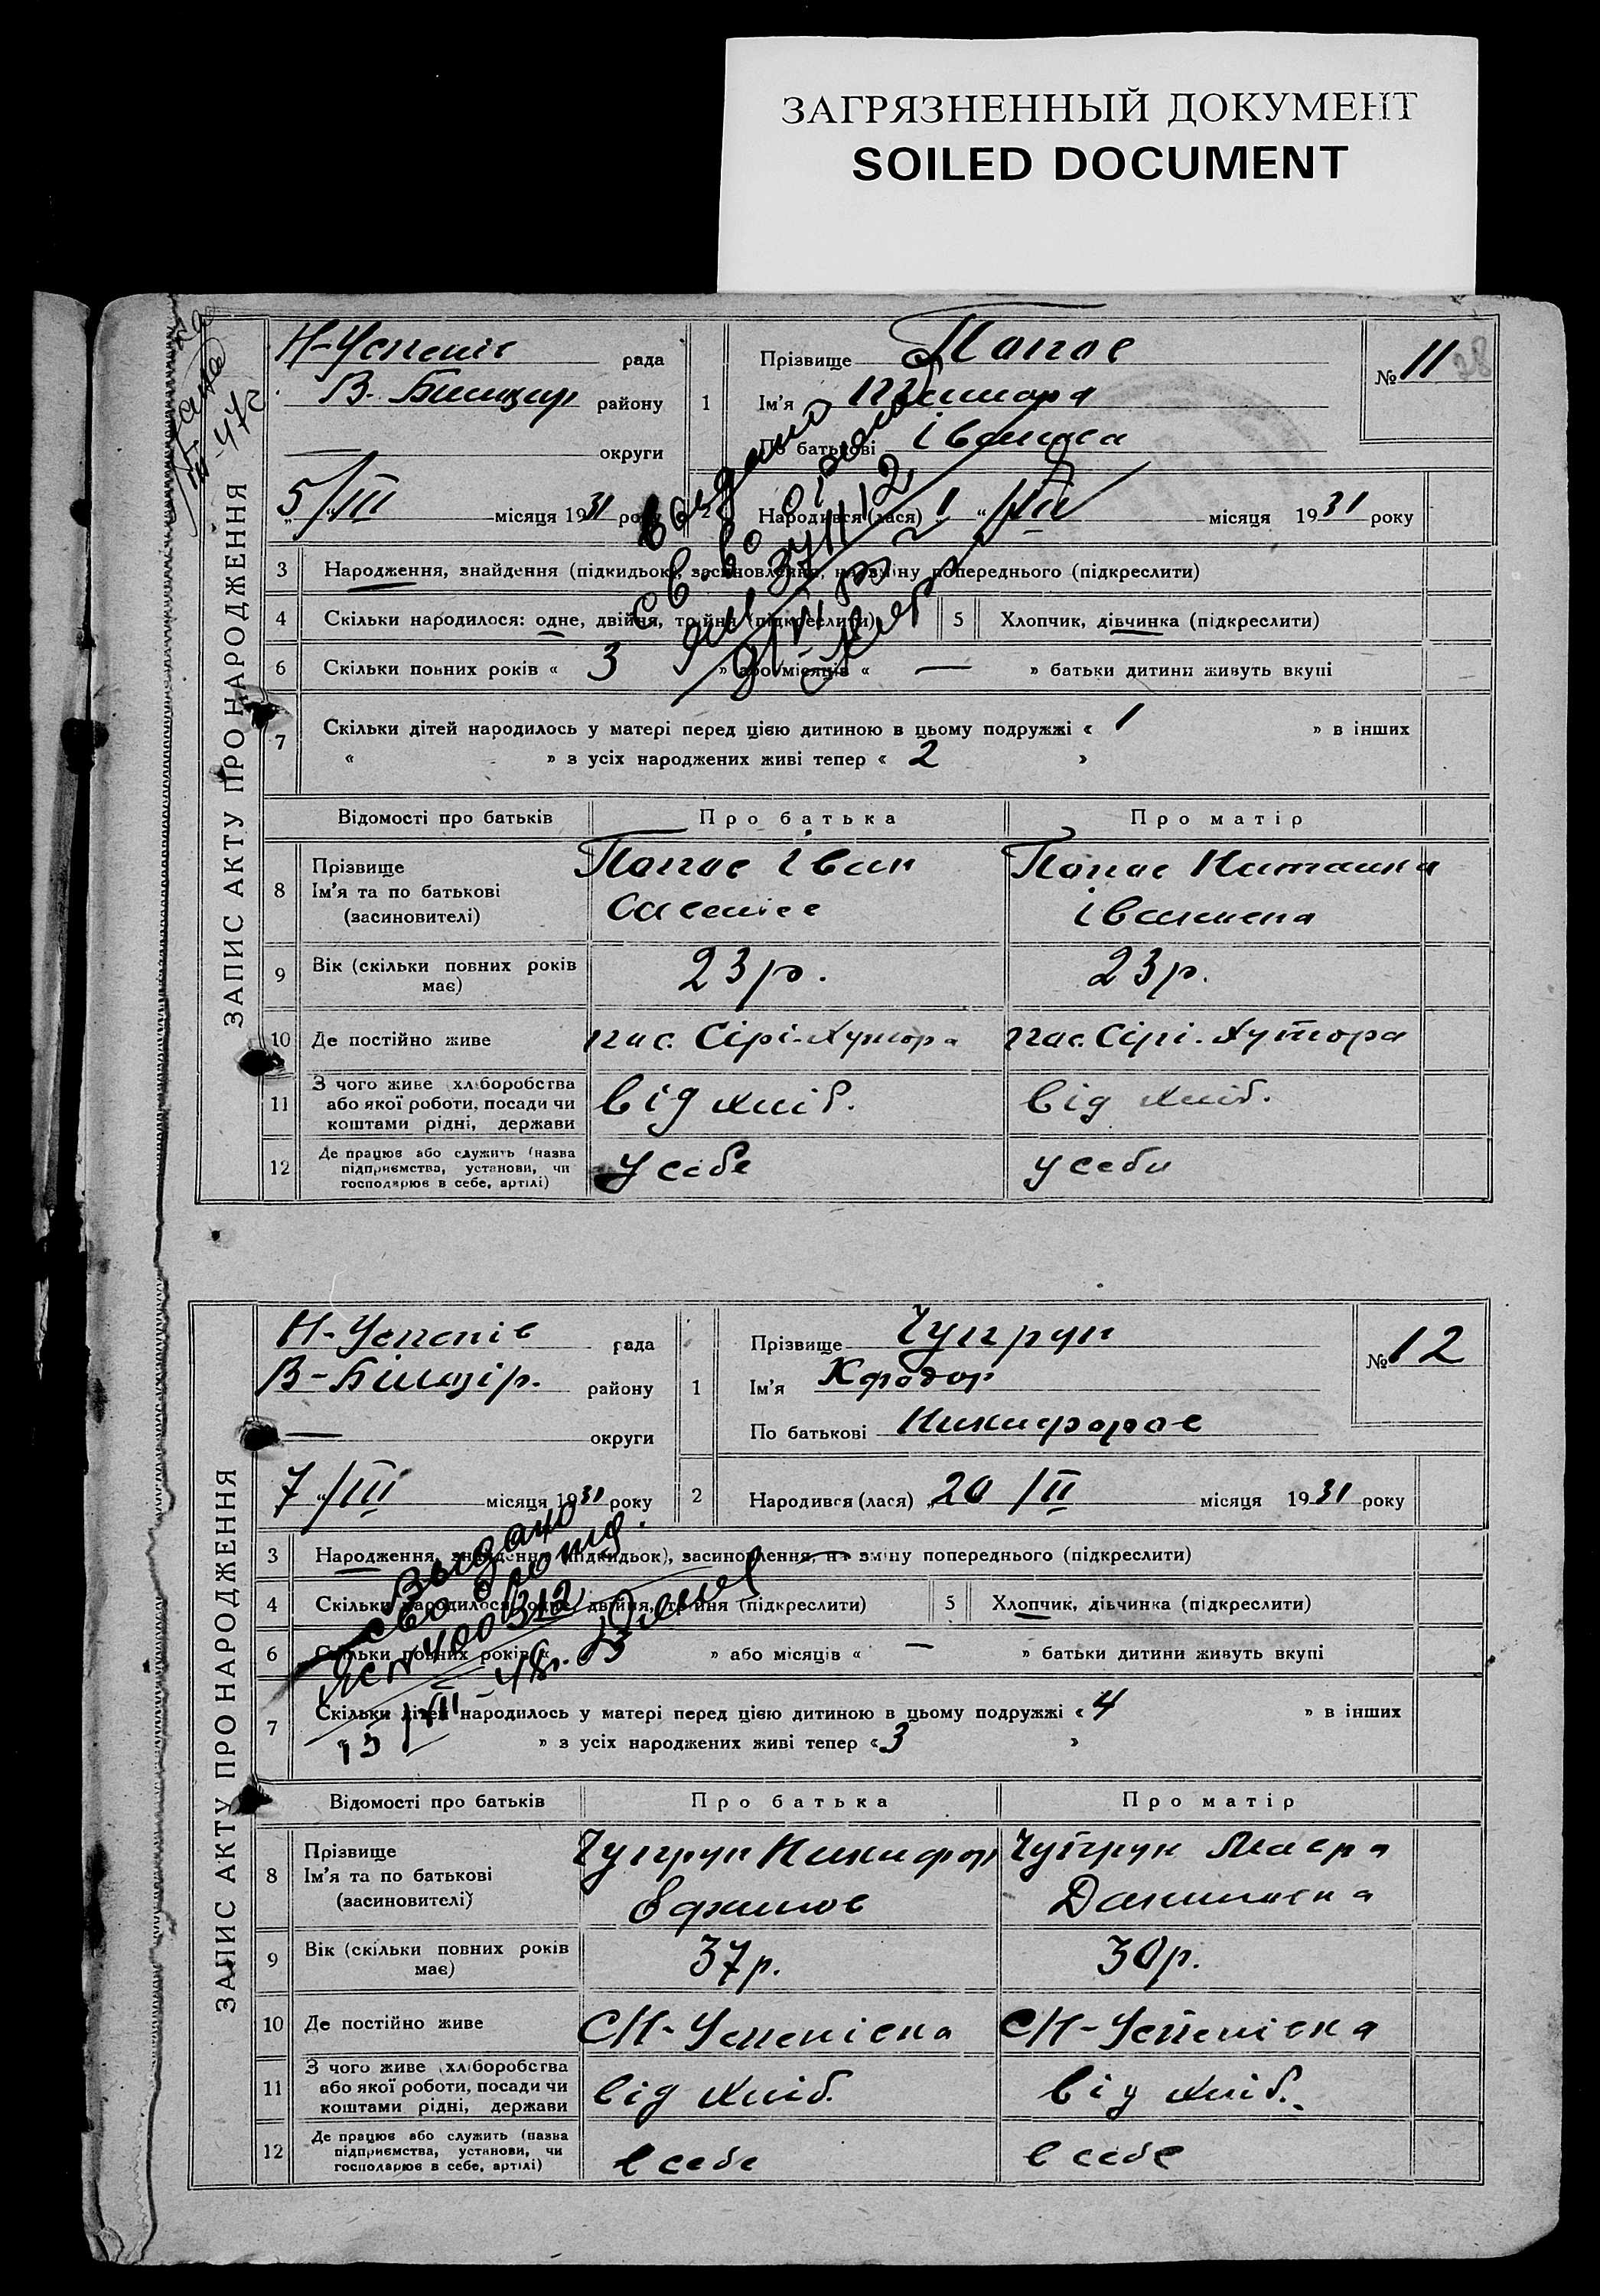 ЗАГРЯЗНЕННЫЙ ДОКУМЕНТ
SOILED DOCUMENT
ЗАПИС АКТУ ПРО НАРОДЖЕННЯ
Н-Успенів рада
В. Билозир району
— округи
5/III місяця 1931 року
1 Прізвище Попов
Ім'я
По батькові Іванова
№ 11
28
2 Народився (лася) 1 /III місяця 1931 року
3 Народження, знайдення (підкидьок), засиновлення, на зміну попереднього (підкреслити)
4 Скільки народилося: одне, двійня, тройня (підкреслити) 5 Хлопчик, дівчинка (підкреслити)
6 Скільки повних років « 3 » або місяців « — » батьки дитини живуть вкупі
7 Скільки дітей народилось у матері перед цією дитиною в цьому подружжі « 1 » в інших
« » з усіх народжених живі тепер « 2 »
Видано
св. во о рожд
Відомості про батьків Про батька Про матір
8 Прізвище Ім'я та по батькові (засиновителі)
Попов Іван
Попов Наташка
Івановна
9 Вік (скільки повних років має) 23 р. 23 р.
10 Де постійно живе пос. Сірі-Хутора пос. Сірі-Хутора
11 З чого живе (хліборобства або якої роботи, посади чи коштами рідні, держави від хліб. від хліб.
12 Де працює або служить (назва підприємства, установи, чи господарює в себе, артілі) у себе у себи
ЗАПИС АКТУ ПРО НАРОДЖЕННЯ
Н-Успенів рада
В-Білозір. району
— округи
7/III місяця 1931 року
1 Прізвище Чупрун
Ім'я
По батькові Никифоров
№ 12
2 Народився (лася) 20 /II місяця 1931 року
3 Народження, знайдення (підкидьок), засиновлення, на зміну попереднього (підкреслити)
4 Скільки народилося: одне, двійня, тройня (підкреслити) 5 Хлопчик, дівчинка (підкреслити)
6 Скільки повних років « » або місяців « — » батьки дитини живуть вкупі
7 Скільки дітей народилось у матері перед цією дитиною в цьому подружжі « 4 » в інших
» з усіх народжених живі тепер « 3 »
Выдано
св о рожд.
Відомості про батьків Про батька Про матір
8 Прізвище Ім'я та по батькові (засиновителі)
Чупрун Никифор
Ефимов
Чупрун
Даниловна
9 Вік (скільки повних років має) 37 р. 30 р.
10 Де постійно живе С Н-Успенівка С Н-Успенівка
11 З чого живе (хліборобства або якої роботи, посади чи коштами рідні, держави від хліб. від хліб.
12 Де працює або служить (назва підприємства, установи, чи господарює в себе, артілі) в себе в себе